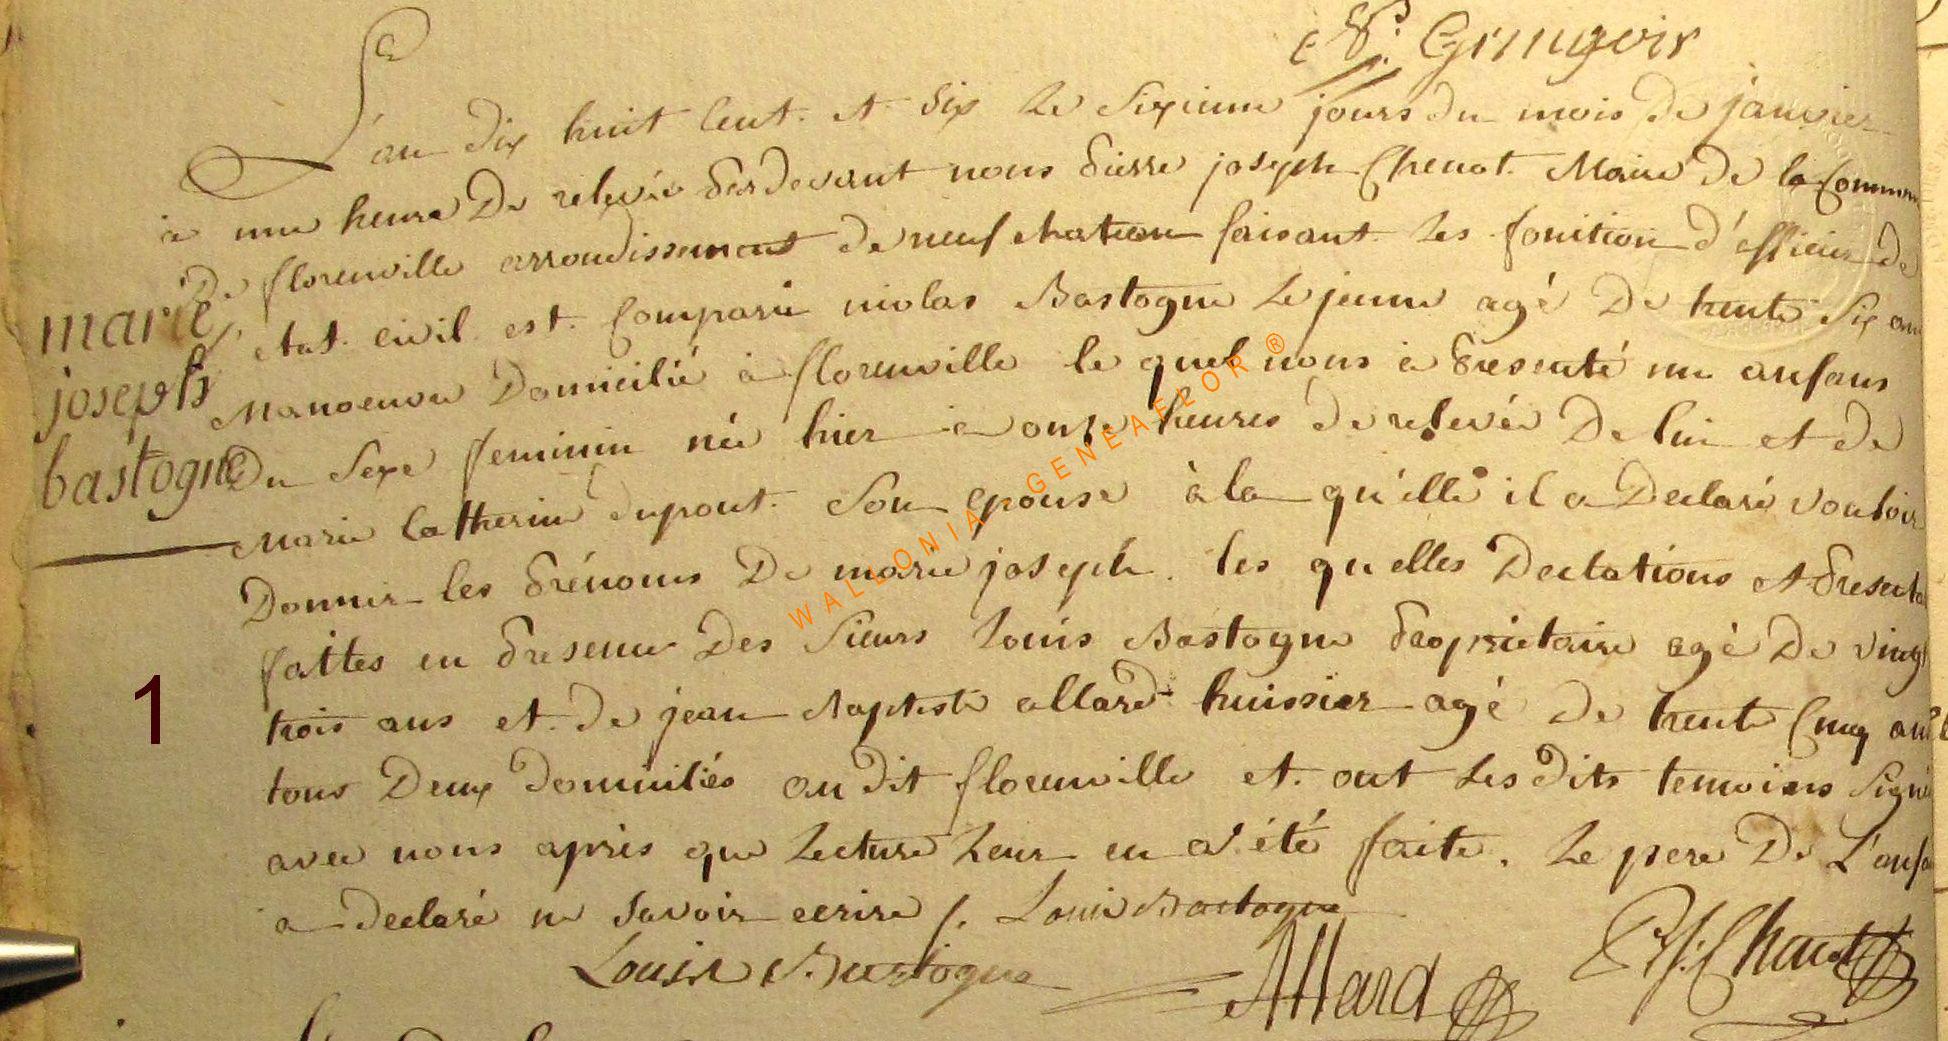 Gringoir
L'an dix huit Cent et Six Le Sixieme jours du mois De janvier
à une heure De relevée Pardevant nous Pierre joseph Chenot Maire De la Commune
De florenville arrondissement de neufchateau faisant Les fonition d'officier De
etat civil est Comparu nicolas Bastogne Le jeune agé De trente Six ans
marie
Manoeuvre Domicilié à florenville le quel nous à Presenté un anfans
joseph
Du Sexe feminin née hier à onze heures De relevée De lui et de
bastogne
Marie Catherine dupont Son epouse à la qu'elle il a Declaré vouloir
Donner les Prénoms De marie joseph. les quelles Declations et Presentations
faittes en Presence Des Sieurs Louis Bastogne Proprietaire agé De vingt
trois ans et De jean Baptiste allard huissier agé De trente Cinq ans
tous Deux Domiciliés au dit florenville et ont Les dits temoins Signé
avec nous après que Lecture Leur en a été faite. Le pere De L'anfans
a declaré ne Savoir ecrire /. Louis Bastogne
Louis Bastogne
Allard
P: J: Chenot
WALLONIA GENEAFLOR ®
1